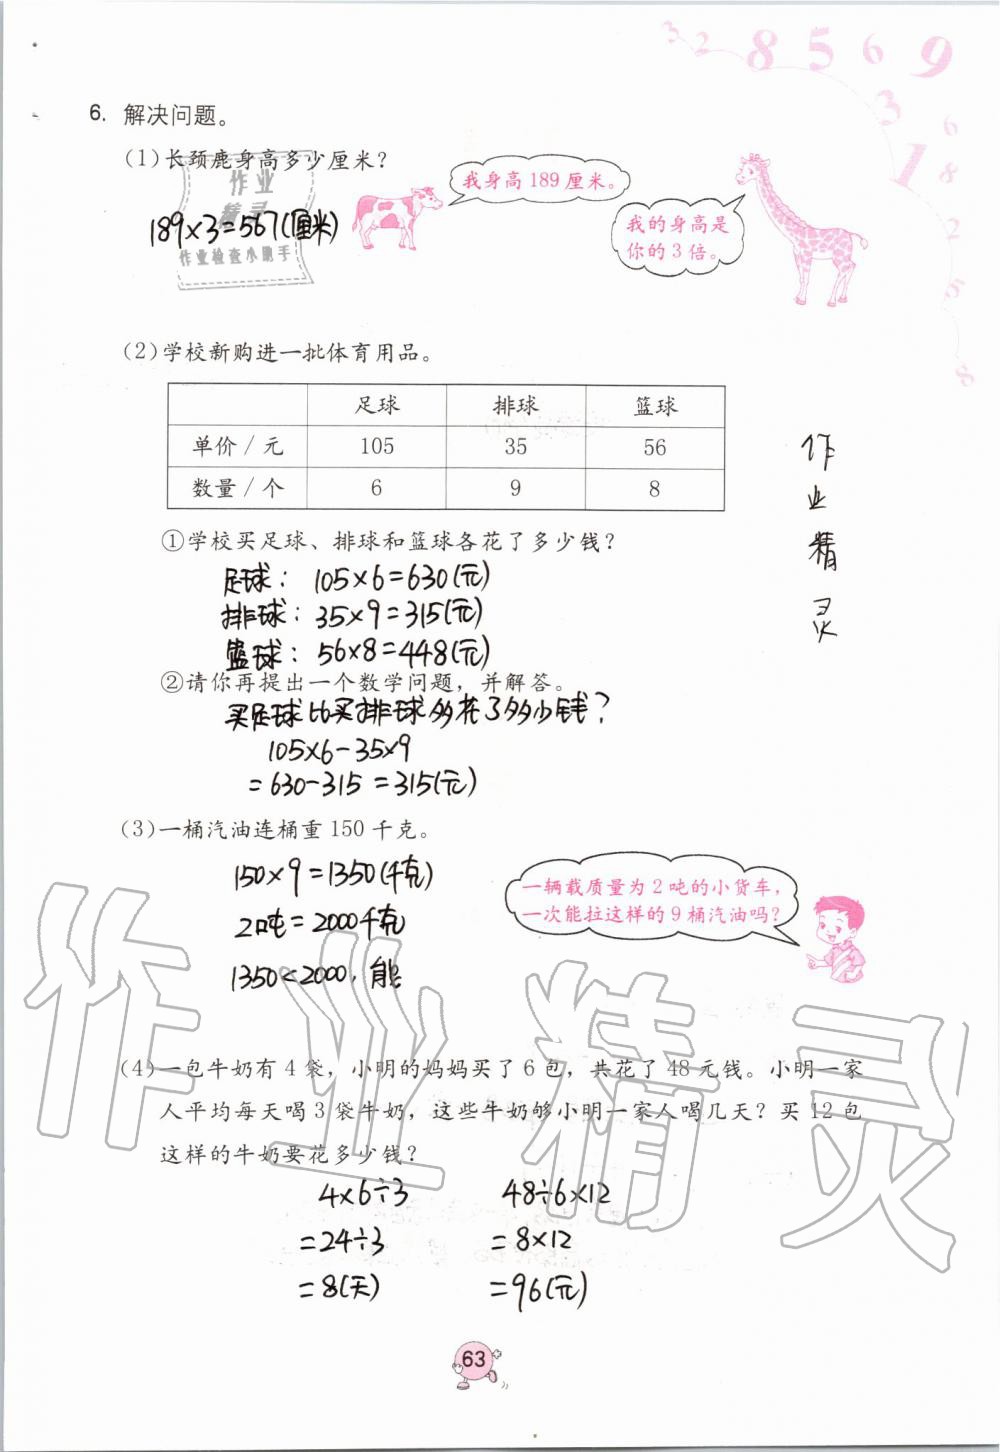 3 2 8 5 6 9
3
6
1 8
2
5
8
6. 解决问题。
(1)长颈鹿身高多少厘米?
作业
精灵
作业检查小助手
我身高189厘米。
我的身高是
你的3倍。
189×3=567(厘米)
(2)学校新购进一批体育用品。
足球 排球 篮球
单价/元 105 35 56
数量/个 6 9 8
作
业
精
灵
①学校买足球、排球和篮球各花了多少钱?
足球: 105×6=630(元)
排球: 35×9=315(元)
篮球: 56×8=448(元)
②请你再提出一个数学问题,并解答。
买足球比买排球多花了多少钱?
105×6-35×9
=630-315=315(元)
(3)一桶汽油连桶重150千克。
150×9=1350(千克)
2吨=2000千克
1350<2000,能
一辆载质量为2吨的小货车,
一次能拉这样的9桶汽油吗?
作业精灵
(4)一包牛奶有4袋,小明的妈妈买了6包,共花了48元钱。小明一家
人平均每天喝3袋牛奶,这些牛奶够小明一家人喝几天?买12包
这样的牛奶要花多少钱?
4×6÷3 48÷6×12
=24÷3 =8×12
=8(天) =96(元)
63